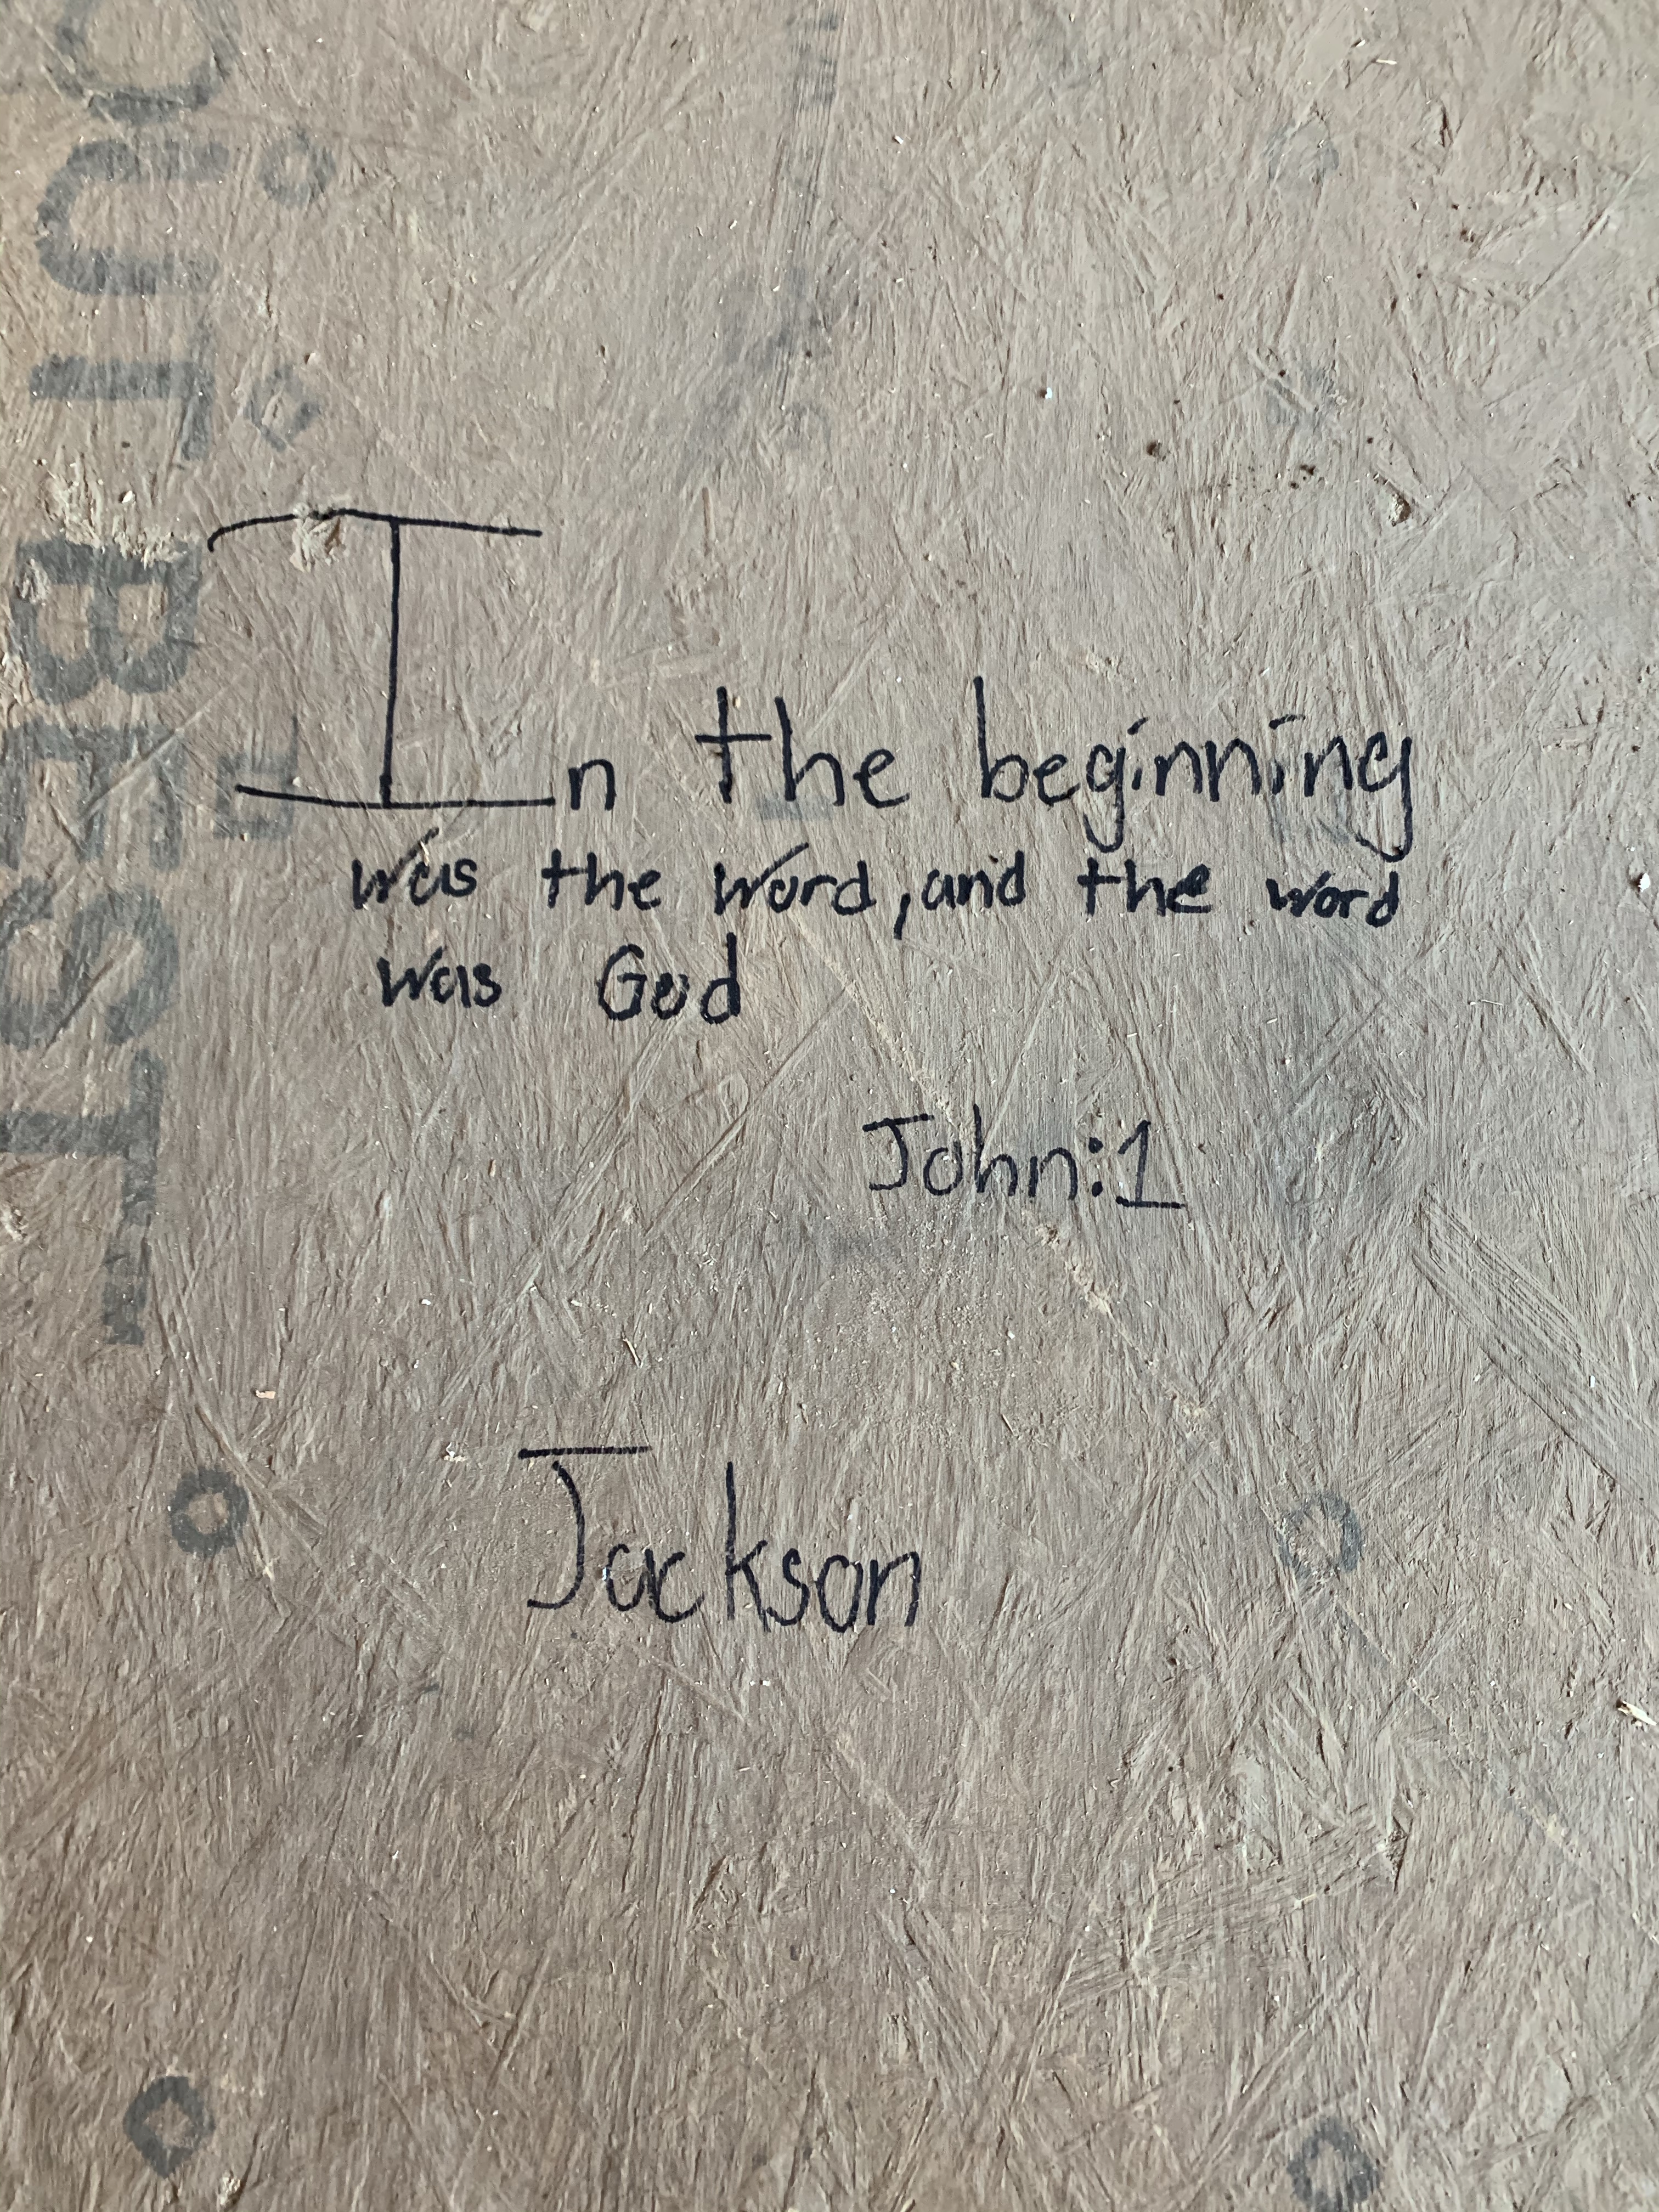 In the beginning
was the word, and the word
was God
John:1
Jackson
BEST